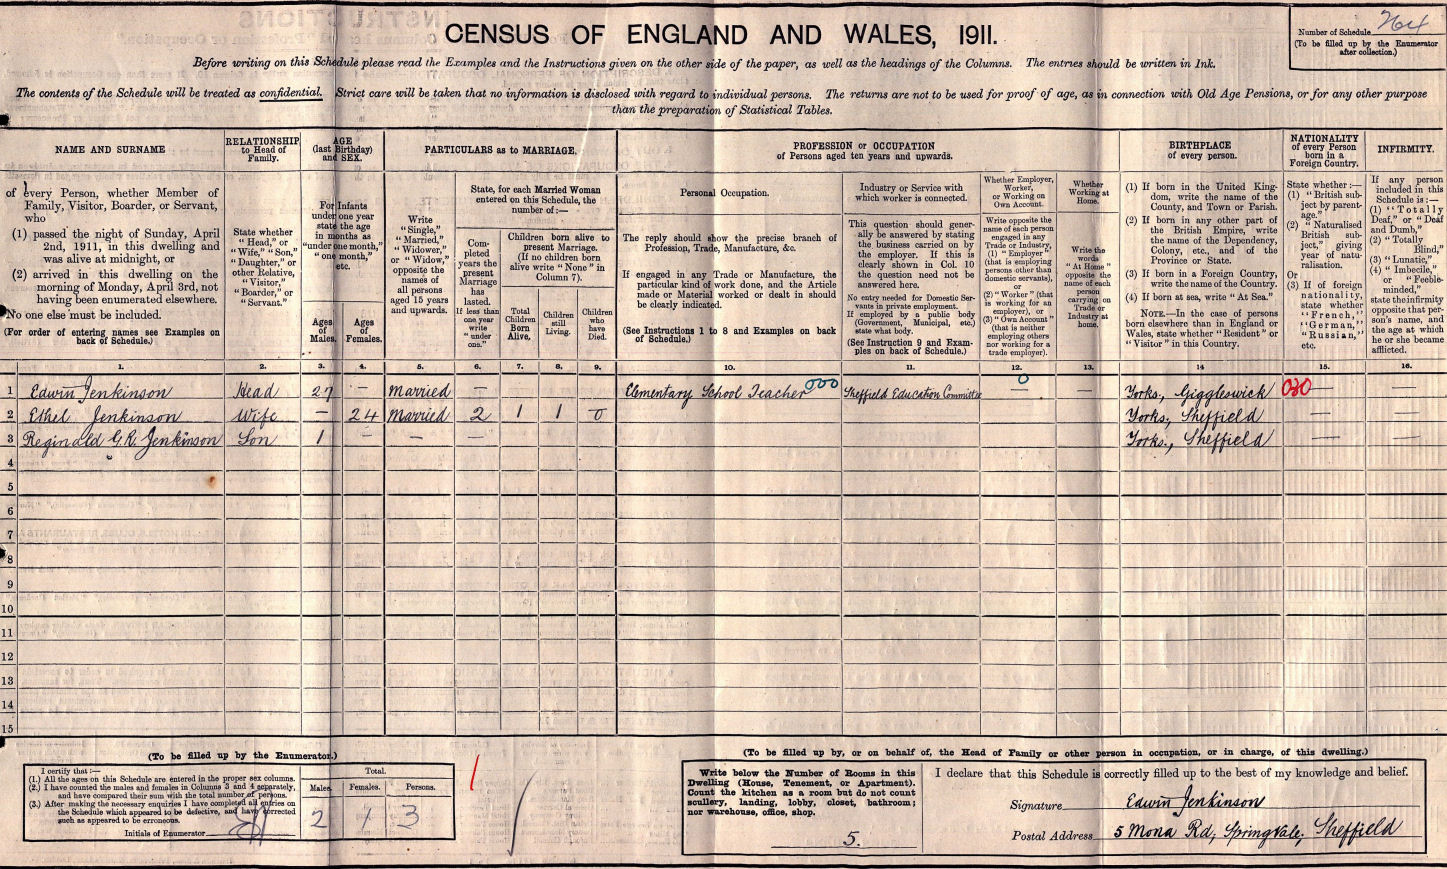 CENSUS OF ENGLAND AND WALES, 1911.
Number of Schedule 264
(To be filled up by the Enumerator
after collection.)
Before writing on this Schedule please read the Examples and the Instructions given on the other side of the paper, as well as the headings of the Columns. The entries should be written in Ink.
The contents of the Schedule will be treated as confidential. Strict care will be taken that no information is disclosed with regard to individual persons. The returns are not to be used for proof of age, as in connection with Old Age Pensions, or for any other purpose
than the preparation of Statistical Tables.
NAME AND SURNAME
RELATIONSHIP
to Head of
Family.
AGE
(last Birthday)
and SEX.
PARTICULARS as to MARRIAGE.
PROFESSION or OCCUPATION
of Persons aged ten years and upwards.
BIRTHPLACE
of every person.
NATIONALITY
of every Person
born in a
Foreign Country.
INFIRMITY.
of every Person, whether Member of
Family, Visitor, Boarder, or Servant,
who
(1) passed the night of Sunday, April
2nd, 1911, in this dwelling and
was alive at midnight, or
(2) arrived in this dwelling on the
morning of Monday, April 3rd, not
having been enumerated elsewhere.
No one else must be included.
(For order of entering names see Examples on
back of Schedule.)
State whether
"Head," or
"Wife," "Son,"
"Daughter," or
other Relative,
"Visitor,"
"Boarder," or
"Servant."
For Infants
under one year
state the age
in months as
"under one month,"
"one month,"
etc.
Ages
of
Males.
Ages
of
Females.
Write
"Single,"
"Married,"
"Widower,"
or "Widow,"
opposite the
names of
all persons
aged 15 years
and upwards.
State, for each Married Woman
entered on this Schedule, the
number of:—
Com-
pleted
years the
present
Marriage
has
lasted.
If less than
one year
write
"under
one."
Children born alive to
present Marriage.
(If no children born
alive write "None" in
Column 7).
Total
Children
Born
Alive.
Children
still
Living.
Children
who
have
Died.
Personal Occupation.
The reply should show the precise branch of
Profession, Trade, Manufacture, &c.
If engaged in any Trade or Manufacture, the
particular kind of work done, and the Article
made or Material worked or dealt in should
be clearly indicated.
(See Instructions 1 to 8 and Examples on back
of Schedule.)
Industry or Service with
which worker is connected.
This question should gener-
ally be answered by stating
the business carried on by
the employer. If this is
clearly shown in Col. 10
the question need not be
answered here.
No entry needed for Domestic Ser-
vants in private employment.
If employed by a public body
(Government, Municipal, etc.)
state what body.
(See Instruction 9 and Exam-
ples on back of Schedule.)
Whether Employer,
Worker,
or Working on
Own Account.
Write opposite the
name of each person
engaged in any
Trade or Industry,
(1) "Employer"
(that is employing
persons other than
domestic servants),
or
(2) "Worker" (that
is working for an
employer), or
(3) "Own Account"
(that is neither
employing others
nor working for a
trade employer).
Whether
Working at
Home.
Write the
words
"At Home"
opposite the
name of each
person
carrying on
Trade or
Industry at
home.
(1) If born in the United King-
dom, write the name of the
County, and Town or Parish.
(2) If born in any other part of
the British Empire, write
the name of the Dependency,
Colony, etc., and of the
Province or State.
(3) If born in a Foreign Country,
write the name of the Country.
(4) If born at sea, write "At Sea."
NOTE.—In the case of persons
born elsewhere than in England or
Wales, state whether "Resident" or
"Visitor" in this Country.
State whether:—
(1) "British sub-
ject by parent-
age."
(2) "Naturalised
British sub-
ject," giving
year of natu-
ralisation.
Or
(3) If of foreign
nationality,
state whether
"French,"
"German,"
"Russian,"
etc.
If any person
included in this
Schedule is:—
(1) "Totally
Deaf," or "Deaf
and Dumb,"
(2) "Totally
Blind,"
(3) "Lunatic,"
(4) "Imbecile,"
or "Feeble-
minded,"
state the infirmity
opposite that per-
son's name, and
the age at which
he or she became
afflicted.
1. 2. 3. 4. 5. 6. 7. 8. 9. 10. 11. 12. 13. 14 15. 16.
1 Edwin Jenkinson Head 27 — Married — Elementary School Teacher 000 Sheffield Education Committee 0 — — Yorks, Giggleswick 030 — —
2 Ethel Jenkinson Wife — 24 Married 2 1 1 0 Yorks, Sheffield — —
3 Reginald G.R. Jenkinson Son 1 — — — Yorks., Sheffield — —
4
5
6
7
8
9
10
11
12
13
14
15
(To be filled up by the Enumerator.)
I certify that:—
(1.) All the ages on this Schedule are entered in the proper sex columns.
(2.) I have counted the males and females in Columns 3 and 4 separately,
and have compared their sum with the total number of persons.
(3.) After making the necessary enquiries I have completed all entries on
the Schedule which appeared to be defective, and have corrected
such as appeared to be erroneous.
Initials of Enumerator
Total.
Males. Females. Persons.
2 1 3
(To be filled up by, or on behalf of, the Head of Family or other person in occupation, or in charge, of this dwelling.)
Write below the Number of Rooms in this
Dwelling (House, Tenement, or Apartment).
Count the kitchen as a room but do not count
scullery, landing, lobby, closet, bathroom;
nor warehouse, office, shop.
5.
I declare that this Schedule is correctly filled up to the best of my knowledge and belief.
Signature Edwin Jenkinson
Postal Address 5 Mona Rd, Springvale, Sheffield